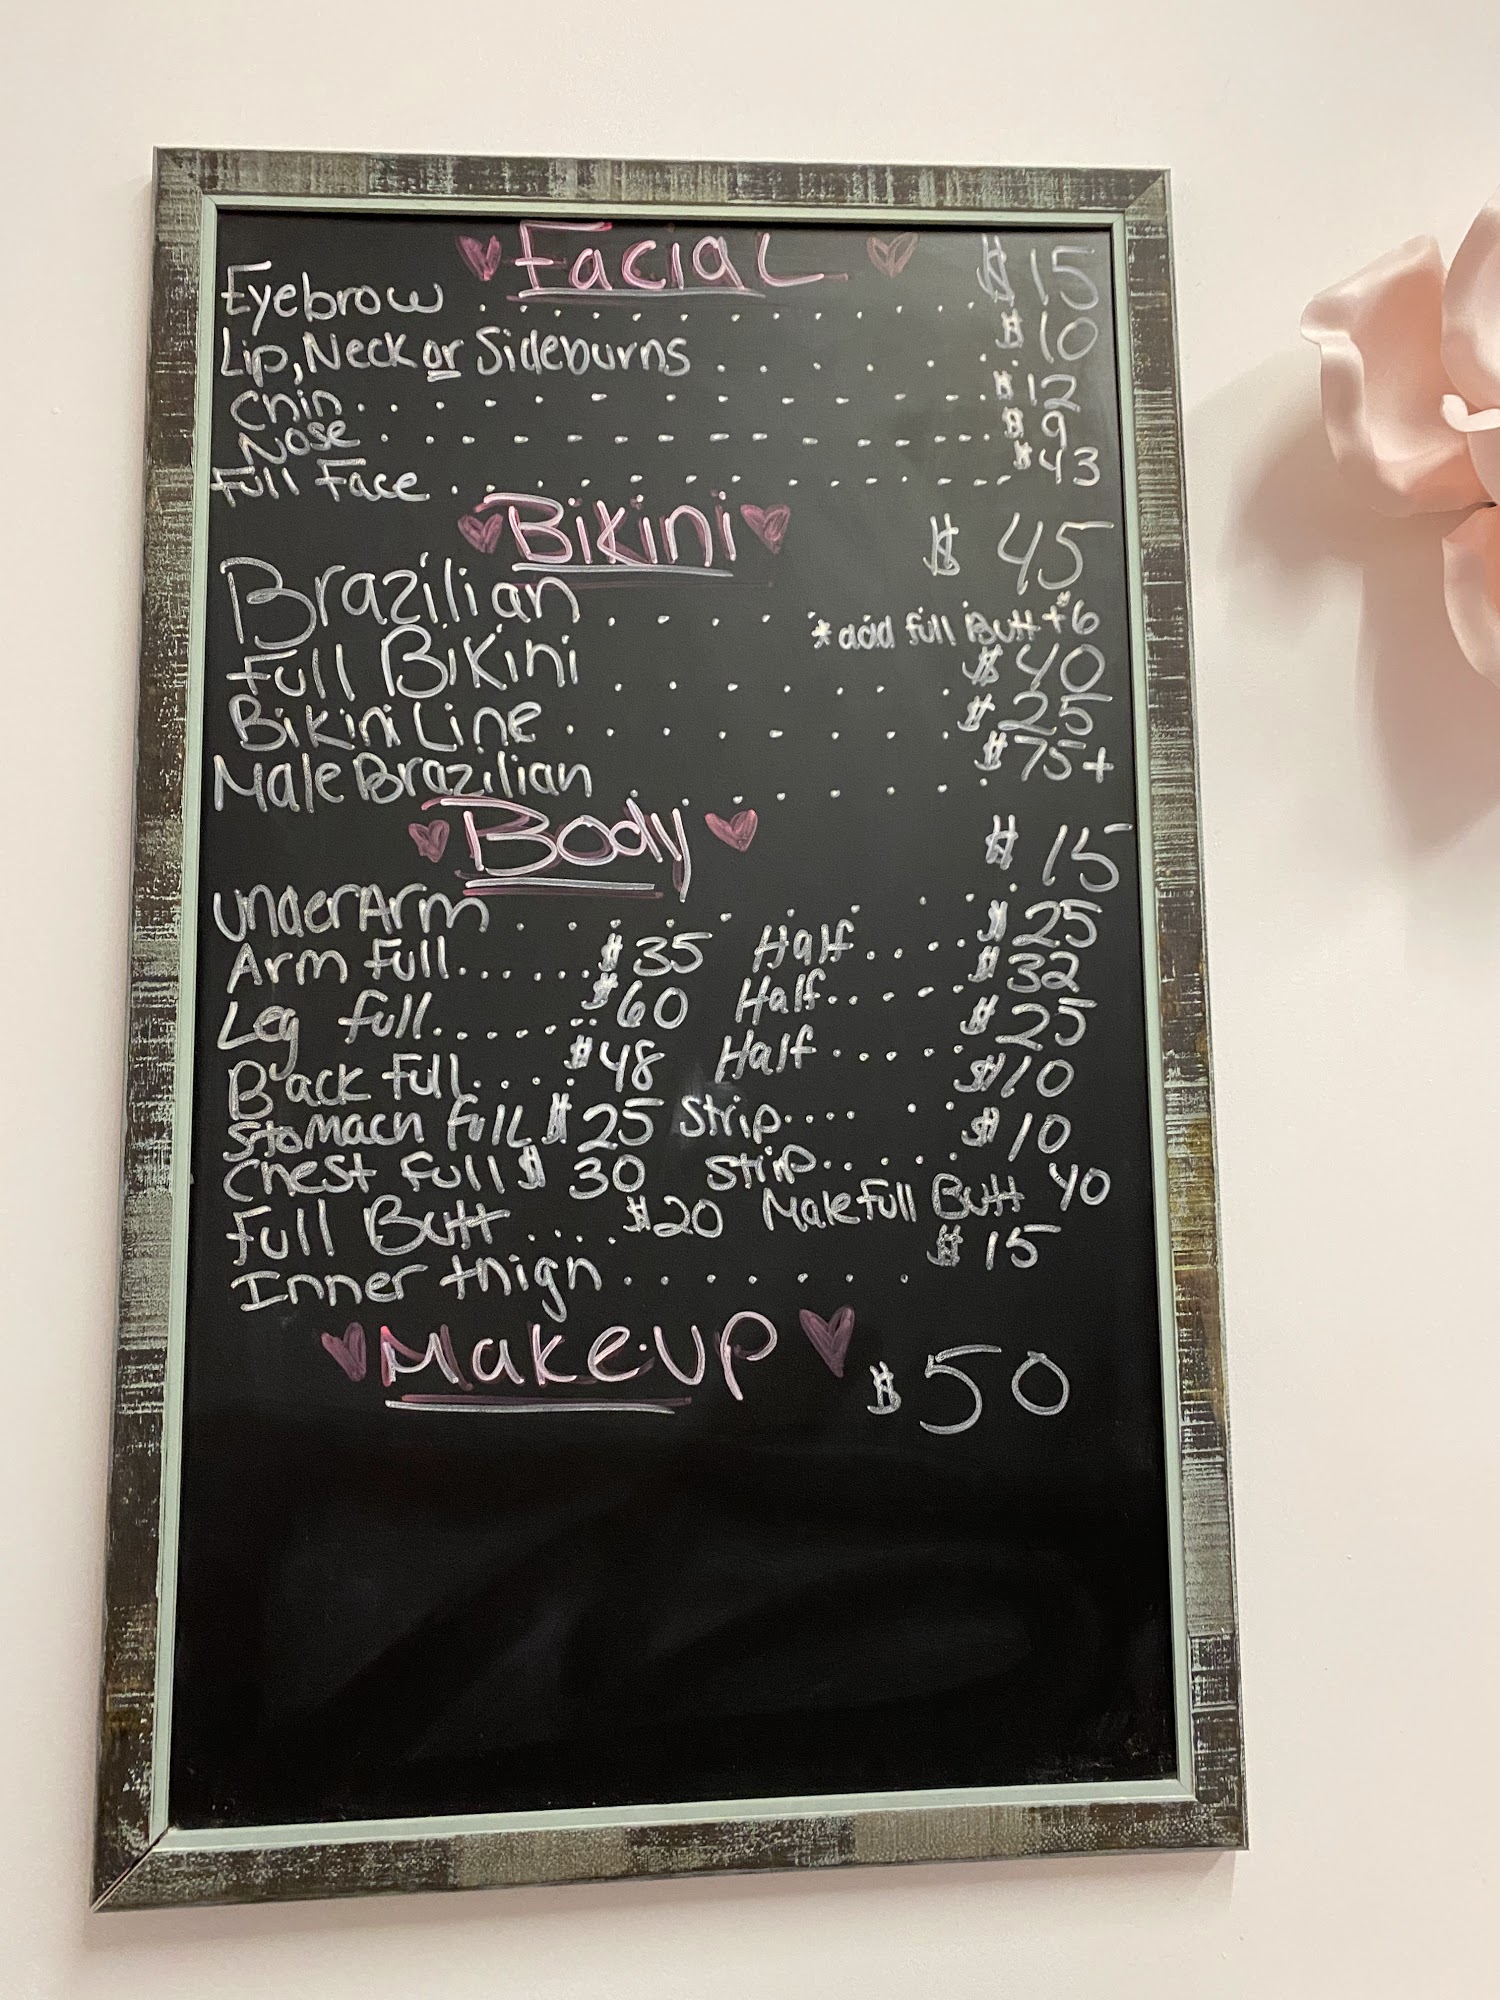 Facial
Eyebrow . . . . . . . . . . $15
Lip, Neck or Sideburns . . . . . . $10
Chin . . . . . . . . . . . . $12
Nose . . . . . . . . . . . . . $9
Full Face . . . . . . . . . . . . . $43
Bikini
Brazilian . . . . . $45
*add full Butt +$6
Full Bikini . . . . . . . $40
Bikini Line . . . . . . . . $25
Male Brazilian . . . . . . . $75+
Body
UnderArm . . . . . . . . . $15
Arm Full . . . . . . $35 Half . . . . . $25
Leg full . . . . . . . $60 Half . . . . . $32
Back Full . . . . . $48 Half . . . . . $25
Stomach Full $25 Strip . . . . . . $10
Chest Full $30 Strip . . . . . $10
Full Butt . . . . . $20 Male Full Butt 40
Inner thigh . . . . . . . $15
Makeup $50